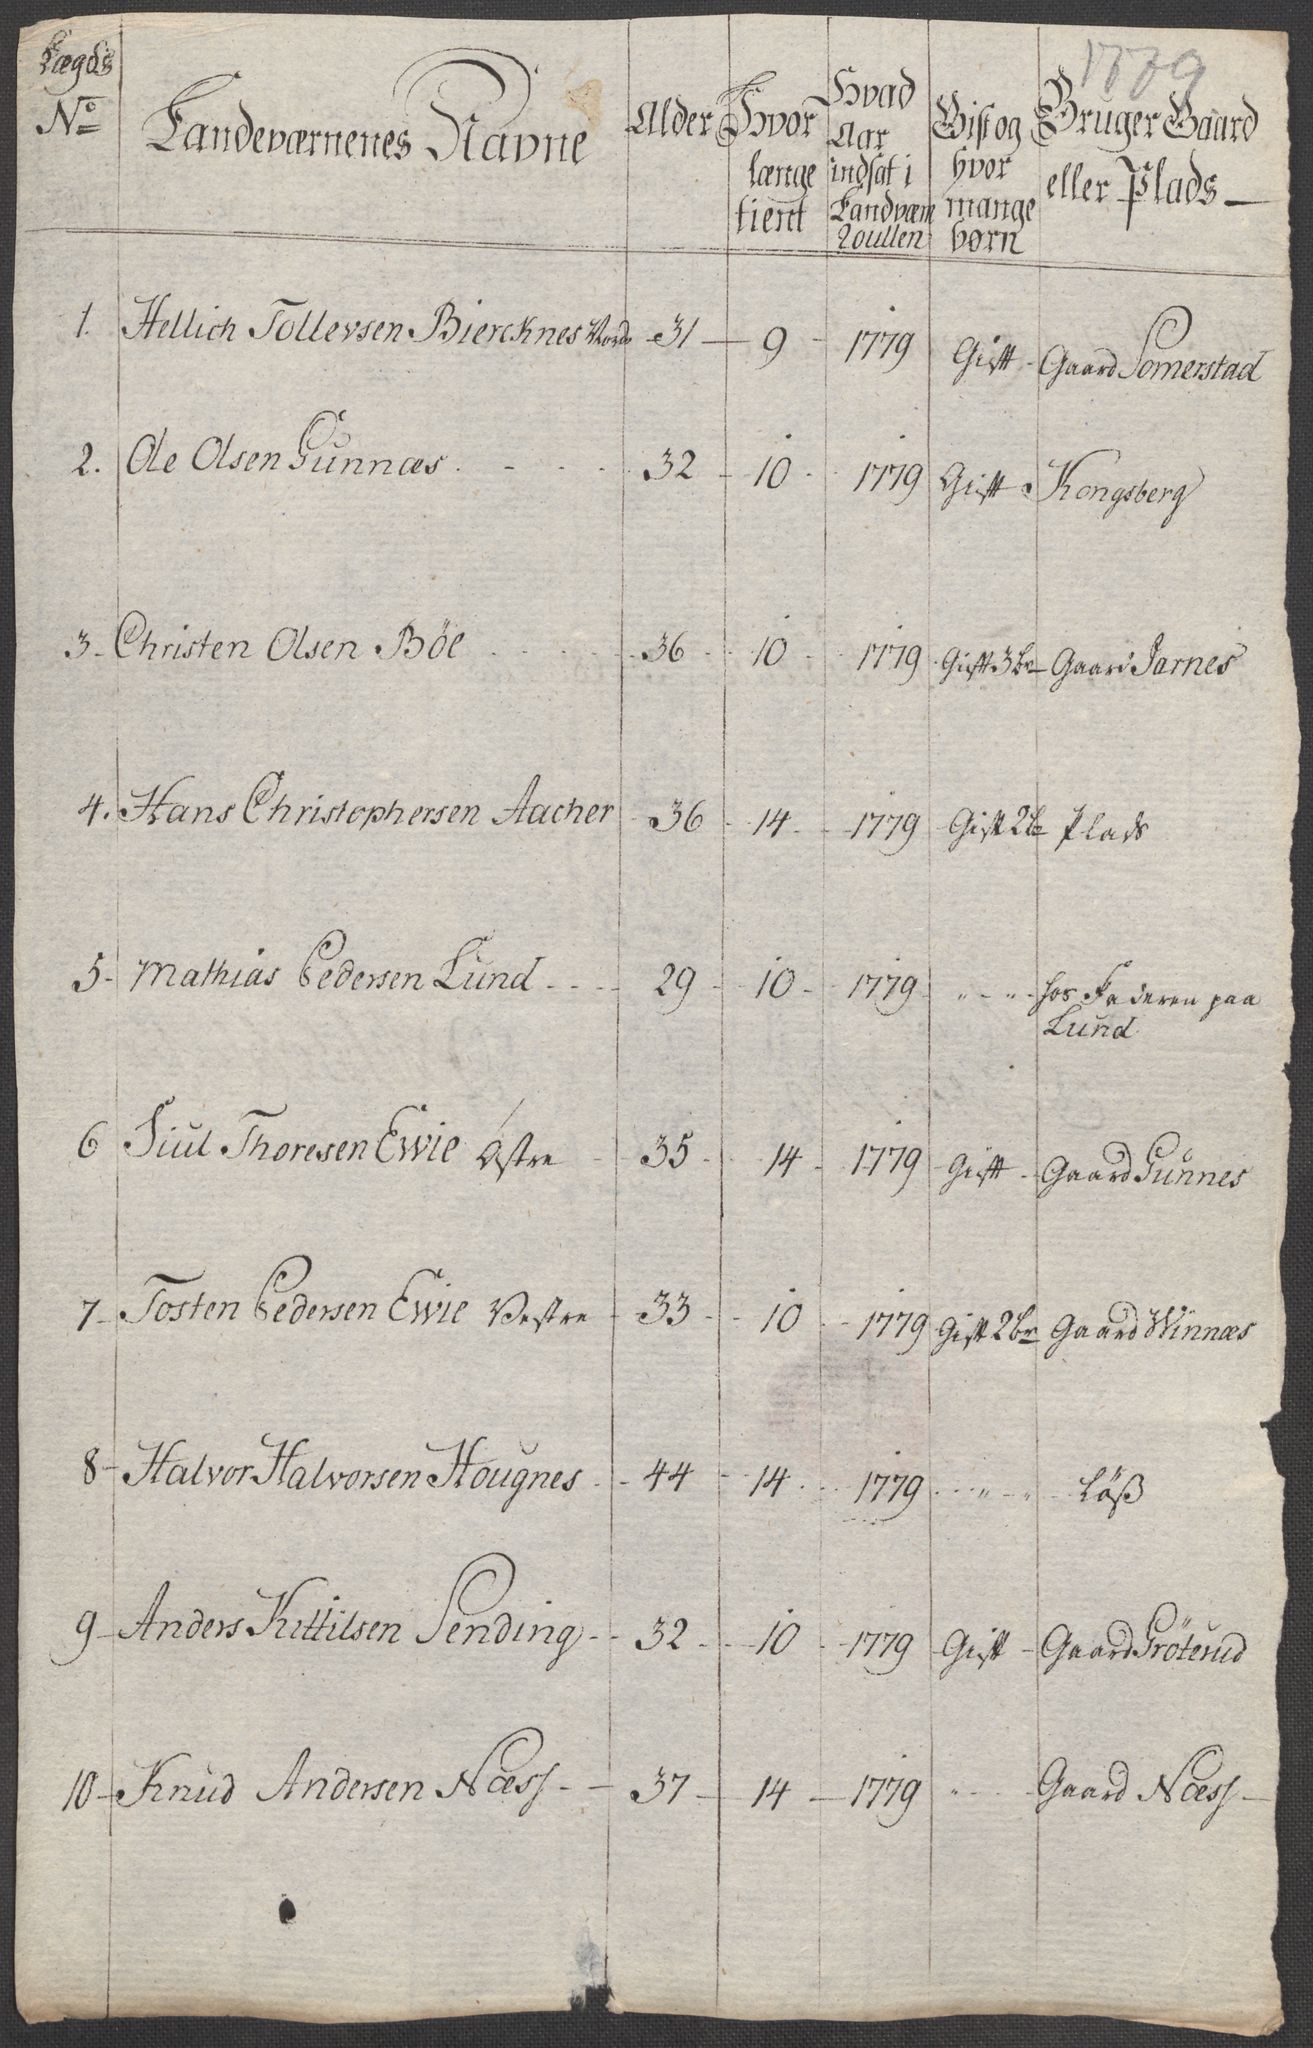 1779
Lægds N° Landeværnenes Navne Alder Hvor længe tient Hvad Aar indsat i Landværn Roullen Gift og hvor mange børn Bruger Gaard eller Plads
1. Hellich Tollevsen Biercknes Nordr 31 9 1779 Gift Gaard Somerstad
2. Ole Olsen Gunnæs 32 10 1779 Gift Kongsberg
3 Christen Olsen Böe 36 10 1779 Gift 3 br Gaard Jarnes
4. Hans Christophersen Aacher 36 14 1779 Gift 2 br Plads
5 Mathias Pedersen Lund 29 10 1779 " " hos Faderen paa
Lund
6 Siul Thoresen Ewie Östre 35 14 1779 Gift Gaard Gunnes
7 Tosten Pedersen Ewie Vestre 33 10 1779 Gift 2 br Gaard Winnæs
8 Halvor Halvorsen Hougnes 44 14 1779 " " Löß
9 Anders Kittilsen Sending 32 10 1779 Gift Gaard Gröterud
10 Knud Andersen Næss 37 14 1779 " Gaard Næss